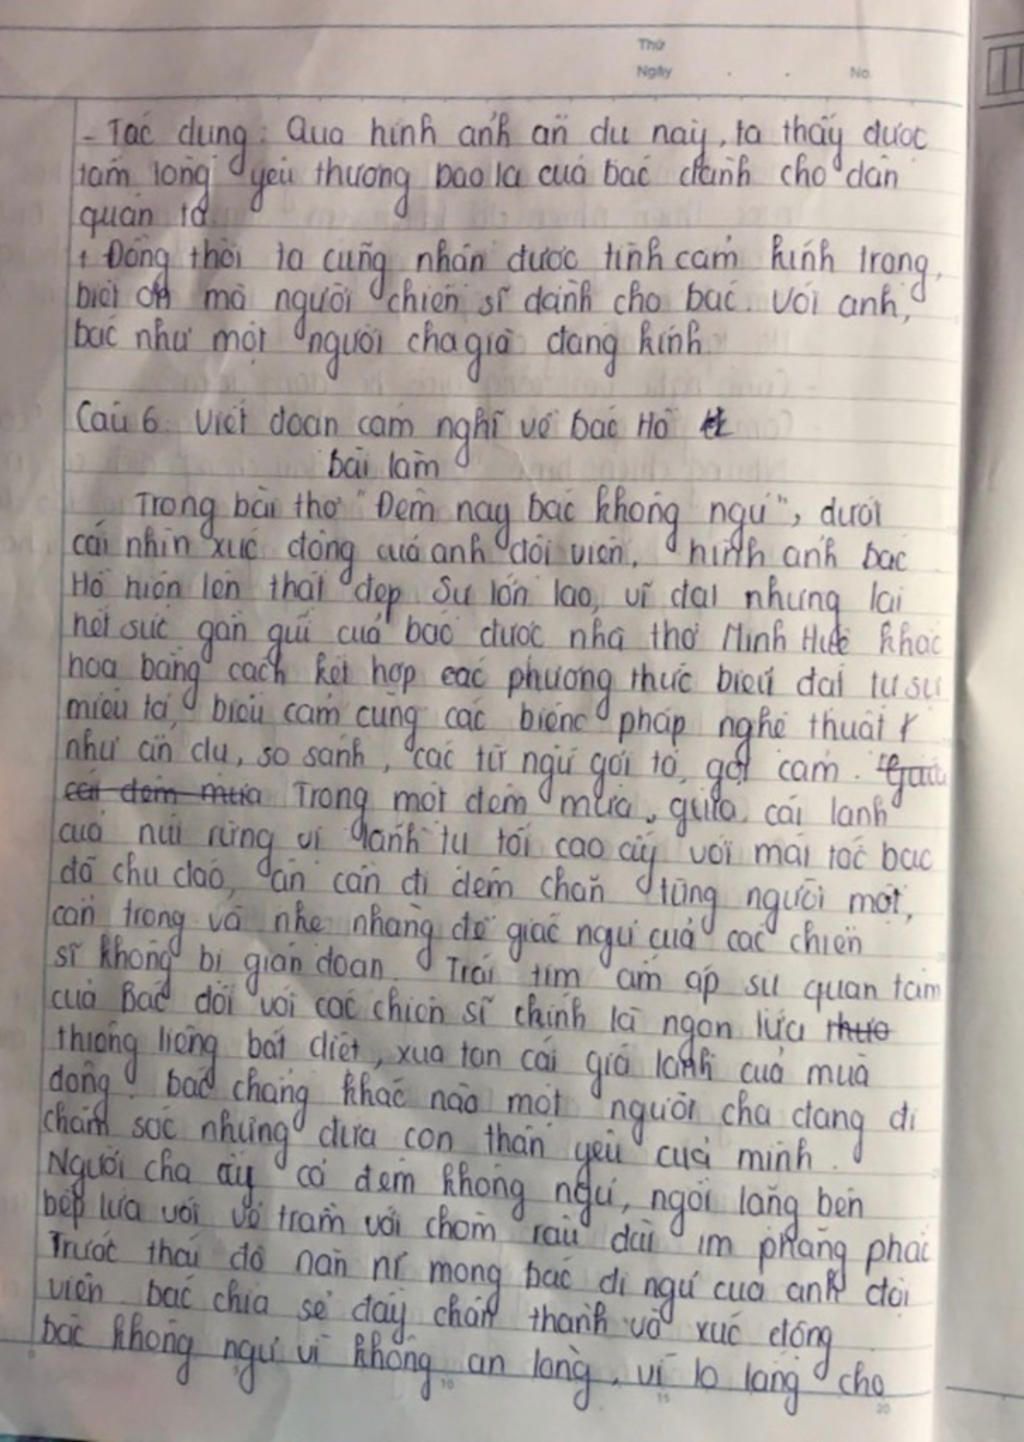 Thứ
Ngày . . No.
- Tác dụng: Qua hình ảnh ẩn dụ này, ta thấy được
tấm lòng yêu thương bao la của bác dành cho dân
quân ta
+ Đồng thời ta cũng nhận được tình cảm kính trọng,
biết ơn mà người chiến sĩ dành cho bác. Với anh,
bác như một người cha già đáng kính
Câu 6: Viết đoạn cảm nghĩ về bác Hồ
bài làm
Trong bài thơ "Đêm nay bác không ngủ", dưới
cái nhìn xúc động của anh đội viên, hình ảnh bác
Hồ hiện lên thật đẹp Sự lớn lao, vĩ đại nhưng lại
hết sức gần gũi của bác được nhà thơ Minh Huệ khắc
họa bằng cách kết hợp các phương thức biểu đạt tự sự
miêu tả, biểu cảm cùng các biện pháp nghệ thuật
như ẩn dụ, so sánh, các từ ngữ gợi tả, gợi cảm. Giữa
cái đêm mưa Trong một đêm mưa, giữa cái lạnh
của núi rừng vị lãnh tụ tối cao ấy với mái tóc bạc
đã chu đáo, ân cần đi dém chăn từng người một,
cẩn trọng và nhẹ nhàng để giấc ngủ của các chiến
sĩ không bị gián đoạn. Trái tim ấm áp sự quan tâm
của Bác đối với các chiến sĩ chính là ngọn lửa thưo
thiêng liêng bất diệt, xua tan cái giá lạnh của mùa
đông. bác chẳng khác nào một người cha đang đi
chăm sóc những đứa con thân yêu của mình.
Người cha ấy cả đêm không ngủ, ngồi lặng bên
bếp lửa với vẻ trầm với chòm râu dài im phăng phắc
Trước thái độ nằn nì mong bác đi ngủ của anh đội
viên bác chia sẻ đầy chân thành và xúc động
bác không ngủ vì không an lòng, vì lo lắng cho